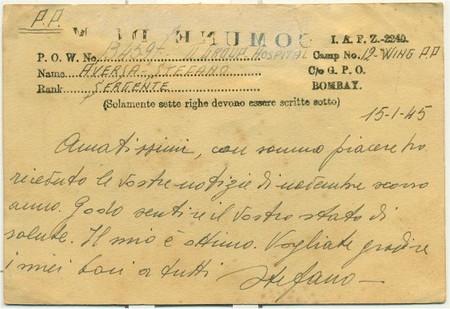 P.P.
COMUNE DI
I.A.F.Z.-2240.
P.O.W. No. HOSPITAL Camp No. 12-WING P.P
Name AVERSA STEFANO C/o G.P.O.
Rank SERGENTE BOMBAY.
(Solamente sette righe devono essere scritte sotto)
15-1-45
Amatissimi, con sommo piacere ho
ricevuto le vostre notizie di novembre scorso
anno. Godo sentire il vostro stato di
salute. Il mio è ottimo. Vogliate gradire
i miei baci a tutti Stefano